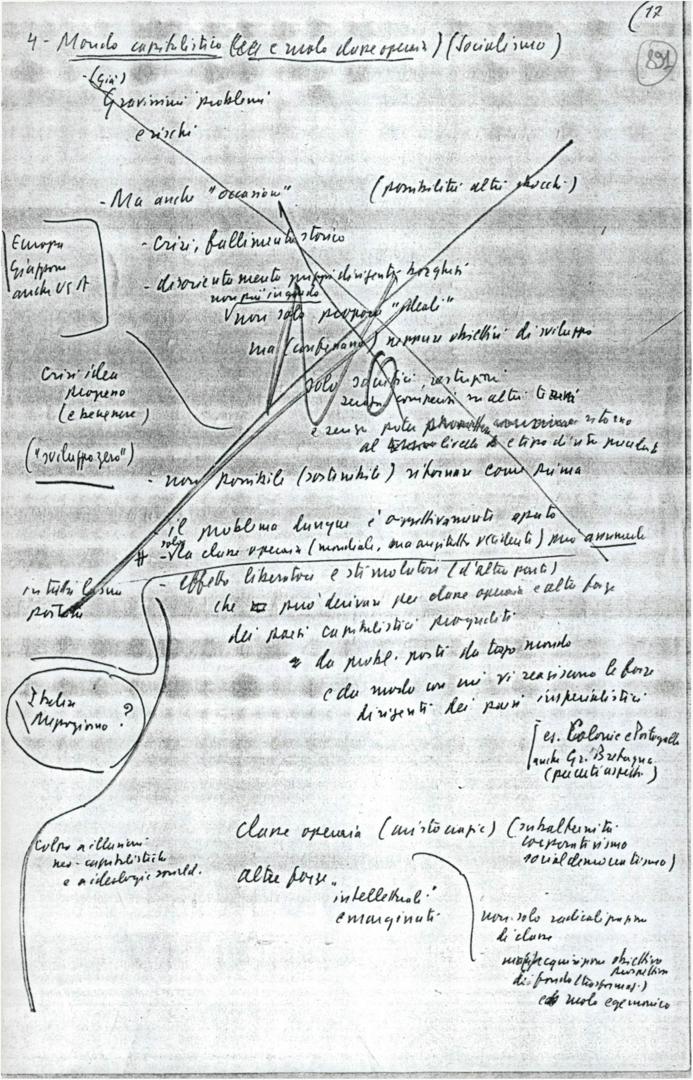 (17
891
4 - Mondo capitalistico (e ruolo classe operaia) (Socialismo)
- (già)
Gravissimi problemi
e rischi
- Ma anche "occasioni"
(possibilità altri sbocchi)
Europa
Giappone
anche USA
- Crisi, fallimento storico
- disorientamento gruppi dirigenti borghesi
non più in grado
non solo proporre "ideali"
ma (confessano) neppure obiettivi di sviluppo
Crisi idea
progresso
(e benessere)
("sviluppo zero")
solo sacrifici, restrizioni
senza compensi su altri terreni
e senza poter ritorno
al livello e tipo di vita preced.
- non possibile (sostenibile) ritornare come prima
il problema dunque è oggettivamente aperto
solo
# - la classe operaia (mondiale, ma anzitutto occidentale) può assumerlo
- effetto liberatori e stimolatori (d'altra parte)
che può derivare per classe operaia e altre forze
dei paesi capitalistici progrediti
da probl. posti da terzo mondo
e da modo con cui vi reagiscono le forze
dirigenti dei paesi imperialistici
Italia
Mezzogiorno ?
[es. Colonie e Portogallo
anche Gr. Bretagna
(per certi aspetti)
Colpo a illusioni
neo-capitalistiche
e a ideologie sociald.
Classe operaia (aristocrazie) (subalternità
corporativismo
socialdemocratismo)
altre forze
intellettuali
emarginati
non solo radicali
di classe
obiettivo
di fondo (trasformaz.)
ruolo egemonico